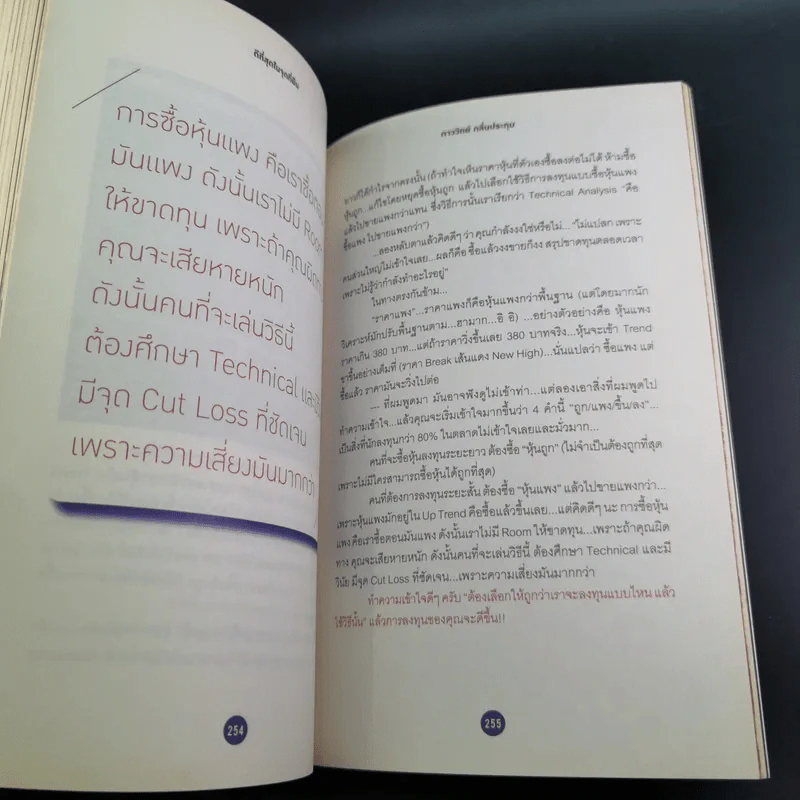 ดีที่สุดในจุดที่ยืน
การซื้อหุ้นแพง คือเราซื้อตอน
มันแพง ดังนั้นเราไม่มี Room
ให้ขาดทุน เพราะถ้าคุณผิดทาง
คุณจะเสียหายหนัก
ดังนั้นคนที่จะเล่นวิธีนี้
ต้องศึกษา Technical และมี
มีจุด Cut Loss ที่ชัดเจน
เพราะความเสี่ยงมันมากกว่า
254
ภาววิทย์ กลิ่นประทุม
ทานก็ได้กำไรจากตรงนั้น (ถ้าทำใจเห็นราคาหุ้นที่ตัวเองซื้อลงต่อไม่ได้ ห้ามซื้อ
หุ้นถูก...แก้ไขโดยหยุดซื้อหุ้นถูก แล้วไปเลือกใช้วิธีการลงทุนแบบซื้อหุ้นแพง
แล้วไปขายแพงกว่าแทน ซึ่งวิธีการนั้นเราเรียกว่า Technical Analysis “คือ
ซื้อแพง ไปขายแพงกว่า”)
...ลองหลับตาแล้วคิดดีๆ ว่า คุณกำลังงงใช่หรือไม่...“ไม่แปลก เพราะ
คนส่วนใหญ่ไม่เข้าใจเลย...ผลก็คือ ซื้อแล้วงงขายก็งง สรุปขาดทุนตลอดเวลา
เพราะไม่รู้ว่ากำลังทำอะไรอยู่”
ในทางตรงกันข้าม...
“ราคาแพง”...ราคาแพงก็คือหุ้นแพงกว่าพื้นฐาน (แต่โดยมากนัก
วิเคราะห์มักปรับพื้นฐานตาม...ฮามาก...อิ อิ) ...อย่างตัวอย่างคือ หุ้นแพง
ราคาเกิน 380 บาท...แต่ถ้าราคาวิ่งขึ้นเลย 380 บาทจริง...หุ้นจะเข้า Trend
ขาขึ้นอย่างเต็มที่ (ราคา Break เส้นแดง New High)...นั่นแปลว่า ซื้อแพง แต่
ซื้อแล้ว ราคามันจะวิ่งไปต่อ
.... ที่ผมพูดมา มันอาจฟังดูไม่เข้าท่า...แต่ลองเอาสิ่งที่ผมพูดไป
ทำความเข้าใจ...แล้วคุณจะเริ่มเข้าใจมากขึ้นว่า 4 คำนี้ “ถูก/แพง/ขึ้น/ลง”...
เป็นสิ่งที่นักลงทุนกว่า 80% ในตลาดไม่เข้าใจเลยและมั่วมาก...
คนที่จะซื้อหุ้นลงทุนระยะยาว ต้องซื้อ “หุ้นถูก” (ไม่จำเป็นต้องถูกที่สุด
เพราะไม่มีใครสามารถซื้อหุ้นได้ถูกที่สุด)
คนที่ต้องการลงทุนระยะสั้น ต้องซื้อ “หุ้นแพง” แล้วไปขายแพงกว่า...
เพราะหุ้นแพงมักอยู่ใน Up Trend คือซื้อแล้วขึ้นเลย...แต่คิดดีๆ นะ การซื้อหุ้น
แพง คือเราซื้อตอนมันแพง ดังนั้นเราไม่มี Room ให้ขาดทุน...เพราะถ้าคุณผิด
ทาง คุณจะเสียหายหนัก ดังนั้นคนที่จะเล่นวิธีนี้ ต้องศึกษา Technical และมี
วินัย มีจุด Cut Loss ที่ชัดเจน...เพราะความเสี่ยงมันมากกว่า
ทำความเข้าใจดีๆ ครับ “ต้องเลือกให้ถูกว่าเราจะลงทุนแบบไหน แล้ว
ใช้วิธีนั้น” แล้วการลงทุนของคุณจะดีขึ้น!!
255